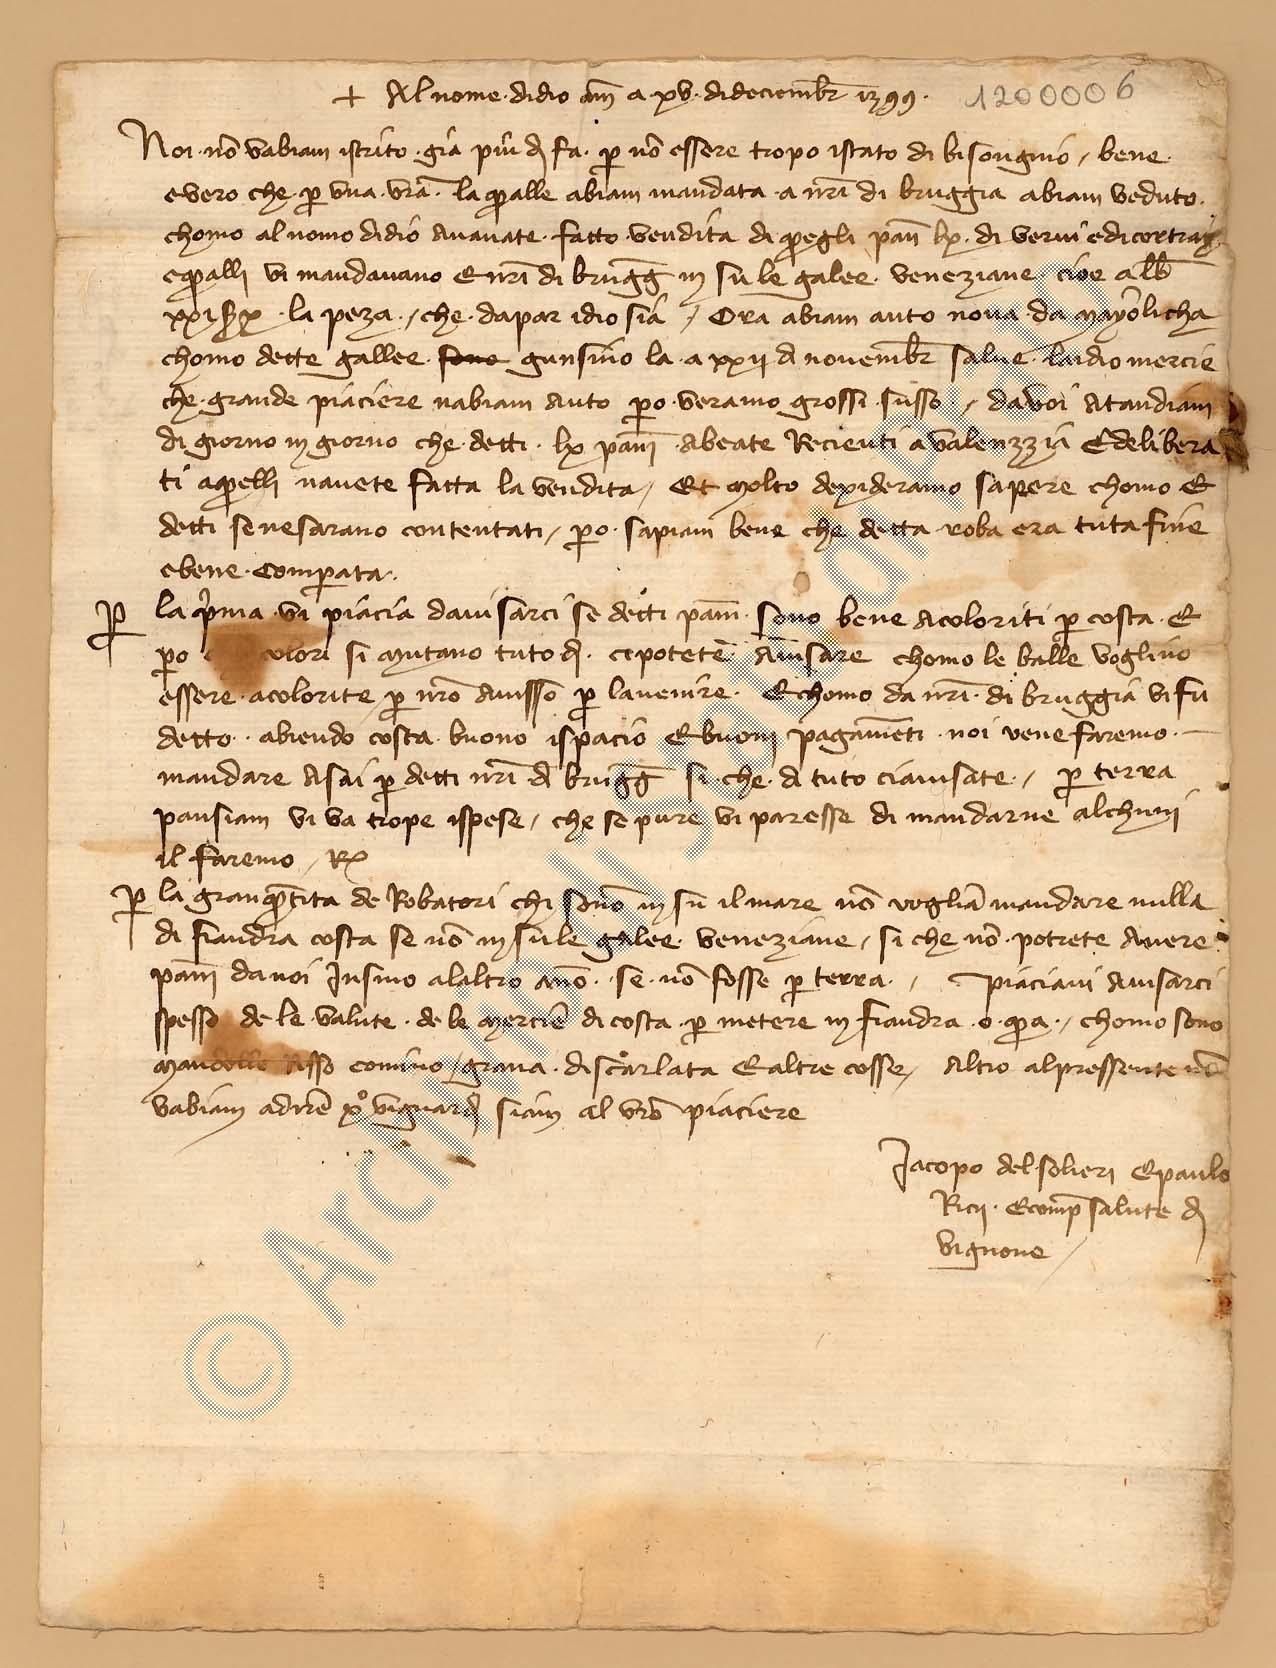 + Al nome di dio am̅ a xv. di deciembr̅ 1399. 1200006
Noi no̅ vabiam iscrito gia piu dj fa. p̱ no̅ essere tropo istato di bisongnio / bene
e vero che p̱ vna vr̅a. la qualle abiam mandata a nr̅i di bruggia abiam veduto.
chomo al nomo di dio avavate fatto vendita di quegli pan̅ lx. di vervi e di cortray
e qualli vi mandavano e nr̅i di brugg̅ in su le galee veneziane cioe a lb̅
la peza. / che da par idio sia / Ora abiam auto nova da mayolicha
chomo dette gallee sono gunsino la a xxij di novembr̅ salve laidio mercie
che grande piaciere nabiam auto p̱o veramo grossi susso / da voi atandiam
di giorno in giorno che detti lx pan̅i abeate recieuti a valenzzia e delibera
ti a quelli navete fatta la vendita / Et molto dexideramo sapere chomo e
detti se ne sarano contentati / p̱o sapiam bene che detta roba era tuta fine
e bene comp̱ata.
P̱ la p'ma vi piacia davisarci se detti pan̅i sono bene acoloriti p̱ costa. E
p̱o colori si mutano tuto dj. ci potete avisare chomo le balle voglino
essere acolorite p̱ nr̅o avisso p̱ lavenire. E chomo da nr̅i di bruggia vi fu
detto abiendo costa buono ispacio e buoni pagam̅eti noi vene faremo
mandare asai p̱ detti nr̅i di brugg̅ si che di tuto ci avisate. / p̱ terra
pansiam vi va trope ispese / che se pure vi paresse di mandarne alchuni
il faremo / Rx
P̱ la gran quatita de robatori chi sono in su il mare no̅ voglia̅ mandare nulla
di fiandra costa se no̅ in su le galee veneziane / si che no̅ potrete avere
pan̅i da noi insino alaltro ano. se no̅ fosse p̱ terra. / piaciavi avisarci
spesso de le valute de le mercie di costa p̱ metere in fiandra o qua / chomo sono
mandolle risso comino / grana di scarlata e altre cosse / altro al pressente no̅
vabiam a dire xo vi guardj siam al vr̅o piaciere
Jacopo del solieri e paulo
Ricij e comp̅ salute dj
vignone /
© Archivio di Stato di Prato